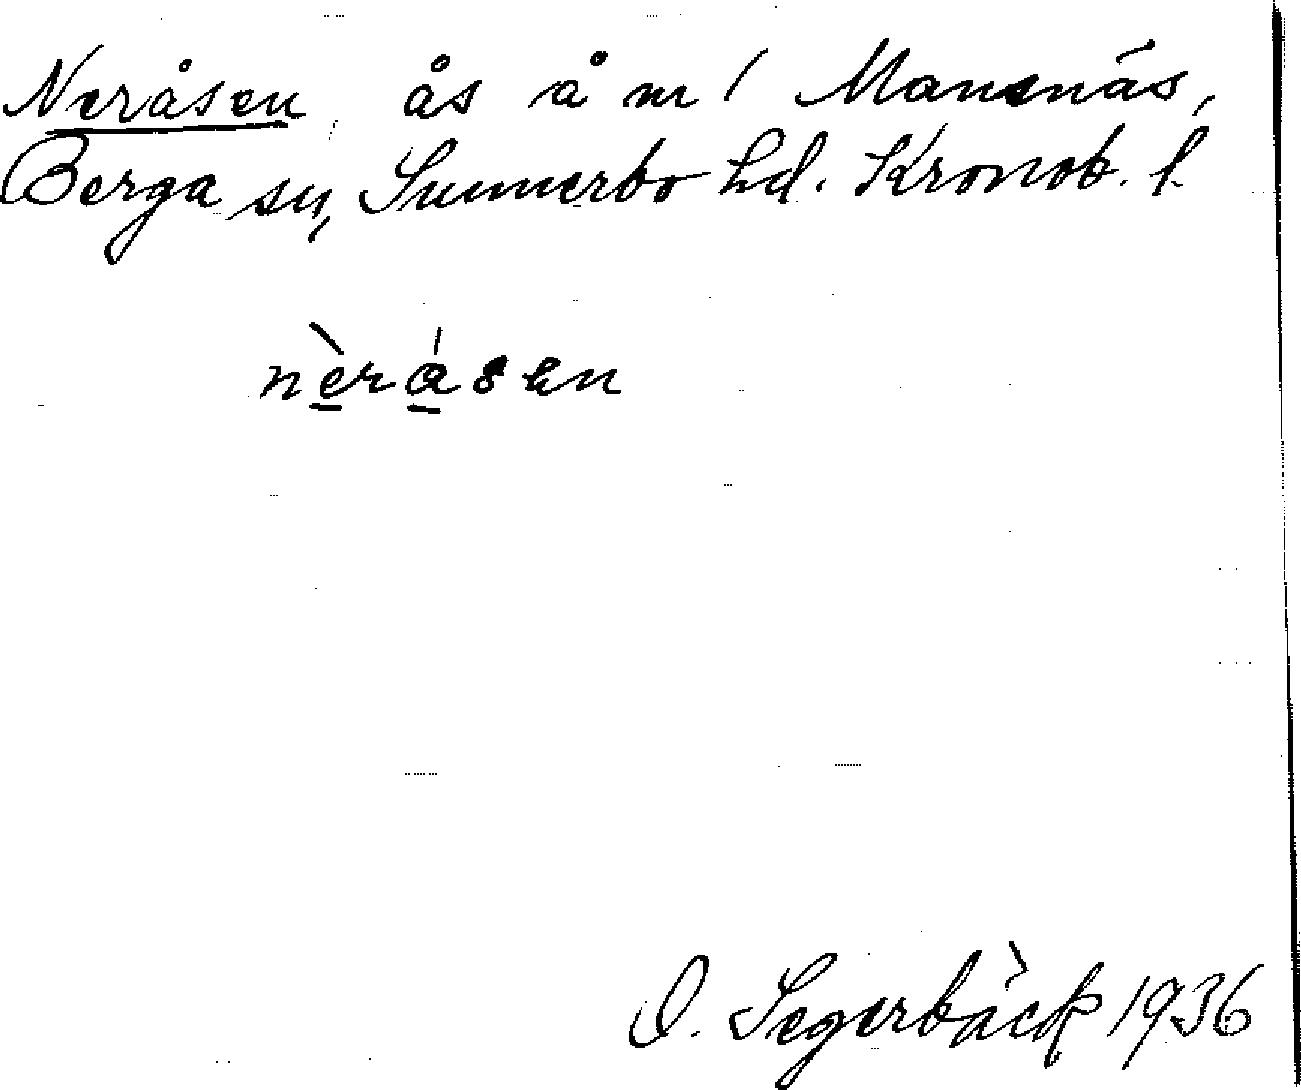 Neråsen, ås å m / Mansnäs,
Berga sn, Sunnerbo hd. Kronob. l
nèråsen
O. Segerbäck 1936